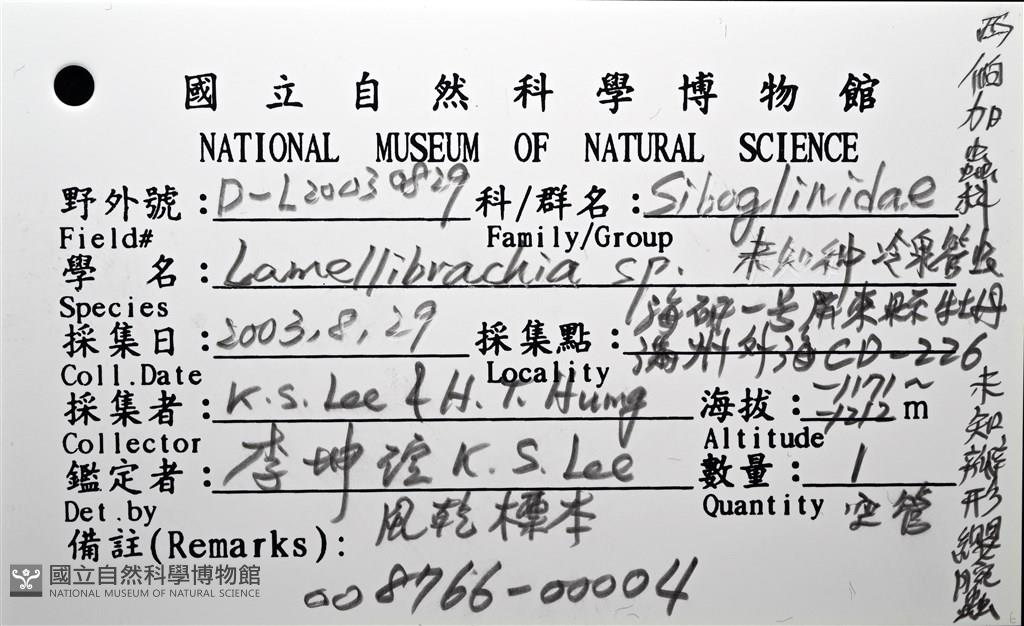 國立自然科學博物館
NATIONAL MUSEUM OF NATURAL SCIENCE
野外號:D-L20030829 科/群名:Siboglinidae
Field# Family/Group
學名:Lamellibrachia sp. 未知种 冷泉管虫
Species
海研一号屏東縣牡丹
採集日:2003,8,29 採集點:滿州外海CD-226
Coll.Date Locality
採集者:K.S. Lee & H.T. Hung 海拔:-1171~-1212m
Collector Altitude
鑑定者:李坤瑄 K.S. Lee 數量:1
Det.by Quantity 空管
備註(Remarks):風乾標本
008766-00004
西伯加蟲科
未知瓣形纓腕蟲
國立自然科學博物館
NATIONAL MUSEUM OF NATURAL SCIENCE